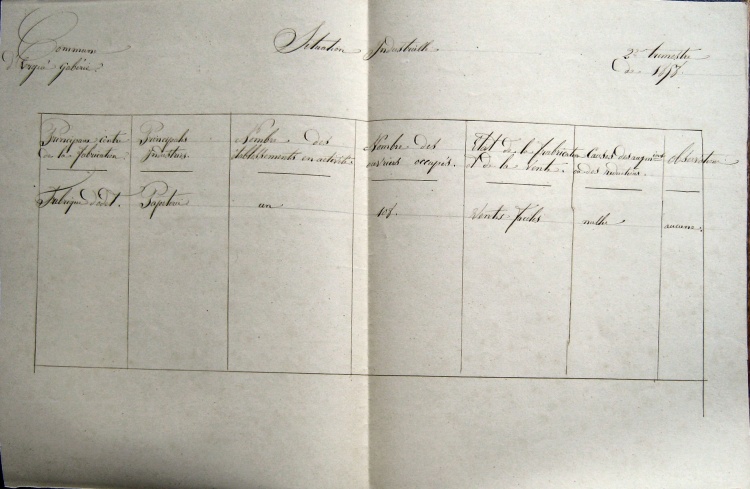 Commune
d'Ergué Gabéric
Situation Industrielle
2e trimestre
de 1898.
Principaux centres
de la fabrication
Principales
Industries
Nombre des
établissements en activité
Nombre des
ouvriers occupés.
Etat de la fabrication
et de la vente.
Causes des augment
ou des réductions
Observations
Fabrique d'Odet.
Papeterie
un
Ventes faciles
nulles
aucune.